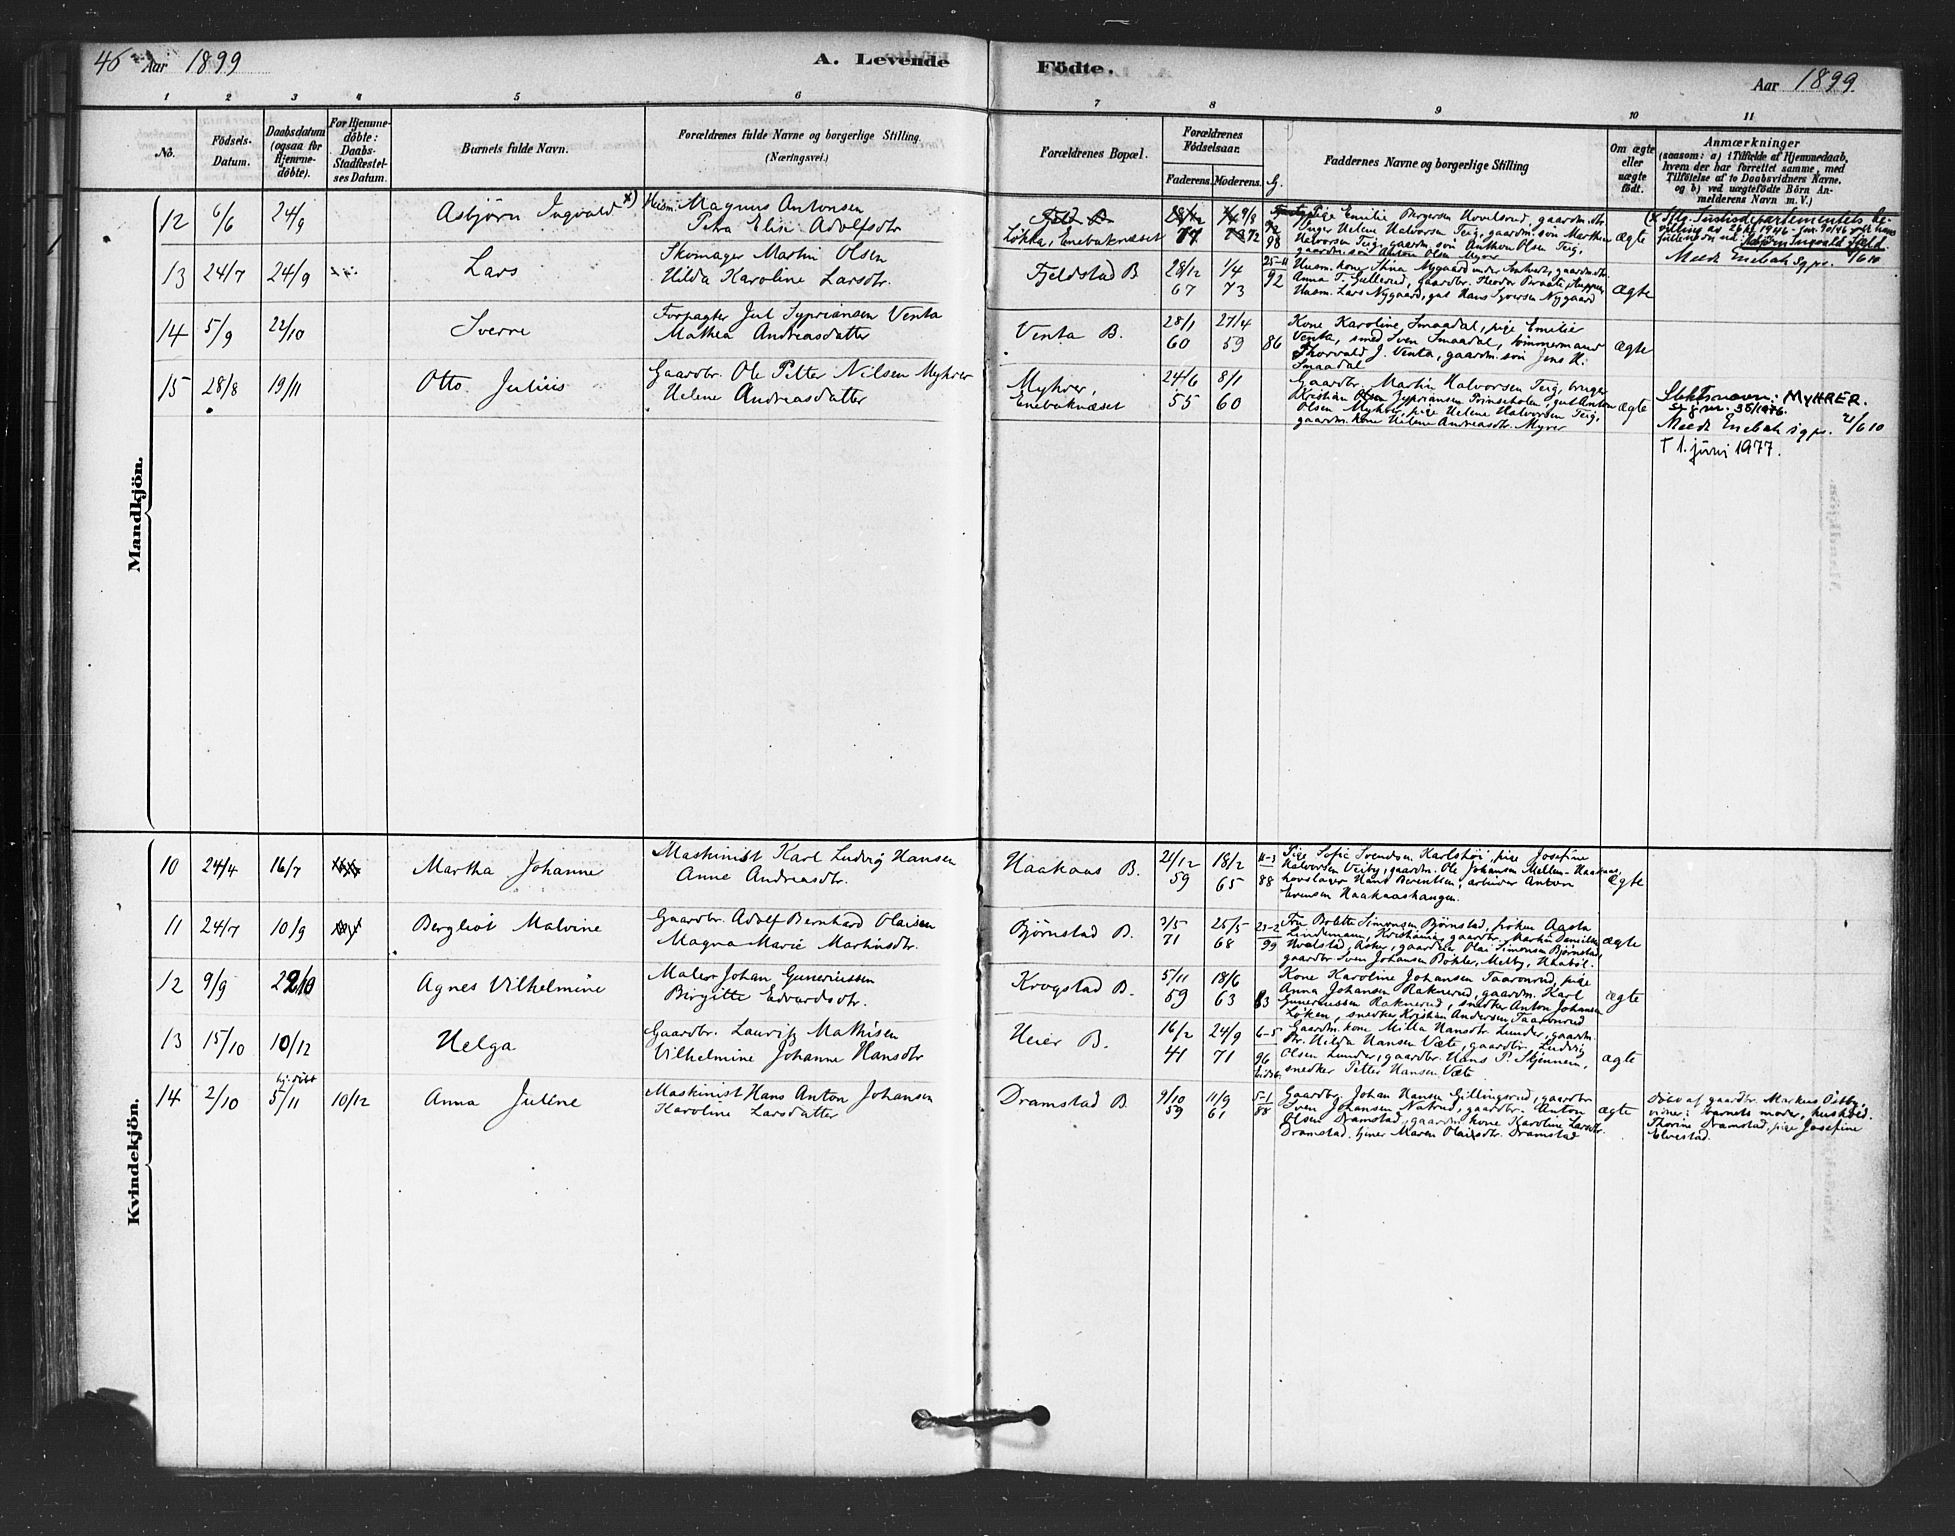 46 Aar 1899
A. Levende Födte.
Aar 1899.
1 2 3 4 5 6 7 8 9 10 11
No.
Födsels-
Datum.
Daabsdatum
(ogsaa for
Hjemme-
döbte).
For Hjemme-
döbte:
Daabs-
Stadfæstel-
ses Datum.
Barnets fulde Navn.
Forældrenes fulde Navne og borgerlige Stilling.
(Næringsvei.)
Forældrenes Bopæl.
Forældrenes
Födselsaar.
Faderens. Moderens.
G.
Faddernes Navne og borgerlige Stilling
Om ægte
eller
uægte
födt.
Anmærkninger
(saasom: a) i Tilfælde af Hjemmedaab,
hvem der har forrettet samme, med
Tilföielse af to Daabsvidners Navne,
og b) ved uægtefödte Börn An-
melderens Navn m. V.)
Mandkjön.
12 6/6 24/9 Asbjörn Ingvald x)
Husm. Magnus Antonsen
Petra Elise Adolfsdtr
Løkka, Enebaknæset
77 72
92
98
Pige Emilie Børgersen Hovelsrud, gaardm. dtr
Inger Helene Halvorsen Teig, gaardm. søn Marthin
Halvorsen Teig, gaardm. søn Anthon Olsen Teig,
gaardm. søn Anton Olsen Myrer
ægte
Asbjörn Ingvald Fjeld
Meedt Enebak sgpr. 2/6 10
13 24/7 24/9 Lars
Skomager Martin Olsen
Hilda Karoline Larsdtr.
Fjeldstad B
28/12 1/4
67 73
25-11
92
Husm. kone Stina Nygaard under
Anna T. Gullerud, gaardbr. Theodor Braate,
Husm. Lars Nygaard, gut Hans Syversen Nygaard
ægte
14 5/9 22/10 Sverre
Forpagter Jul Sypriansen Venta
Mathea Andreasdatter
Venta B.
28/1 27/4
60 59 86
Kone Karoline Smaadal, pige Emelie
Venta, smed Sven Smaadal, tømmermand
Thorvald J. Venta, gaardm. søn Jens H.
Smaadal
ægte
15 28/8 19/11 Otto Julius
Gaardbr. Ole Petter Nilsen Myhrer
Helene Andreasdatter
Myhrer,
Enebaknæset
24/6 8/1
55 60
Gaardbr. Martin Halvorsen Teig, bruger
Kristian Olsen Zypriansen Prinsehólen, gut Anton
Olsen Myhrer, pige Helene Halvorsen Teig,
gaardm. kone Helene Andreasdtr. Myrer
ægte
Slektsnavn: MYHRER.
st. j. nr. 36/1976.
Meedt Enebak sgpr. 2/6 10
† 1. juni 1977.
Kvindekjön.
10 24/4 16/7 Martha Johanne
Maskinist Karl Ludvig Hansen
Anne Andreasdtr.
Haakaas B.
21/12 18/2
59 65
11-3
88
Pige Sofie Svendsen Karlshøi, pige Josefine
Halvorsen Veiby, gaardm. Ole Johansen Mellem-Haakaas,
hovslager Hans Berentsen, arbeider Anton
Evensen Haakaashaugen.
ægte
11 24/7 10/9 Bergliot Malvine
Gaardbr. Adolf Bernhard Olaisen
Magna Marie Martinsdtr.
Bjørnstad B.
3/5 25/5
71 68
23-2
99
Fru Bolette Simonsen Bjørnstad, frøken Aasta
Lindemann, Kristiania, gaardbr. Martin Danielsen
Hvalstad, Asker, gaardeier Olai Simonsen Bjørnstad,
gaardbr. Sven Johansen Bøhler, Melby, Haabøl.
ægte
12 9/9 22/10 Agnes Vilhelmine
Maler Johan Gunerussen
Birgitte Edvardsdtr.
Krogstad B.
5/11 18/6
59 63 83
Kone Karoline Johansen Taaronrud, pige
Anna Johansen Raknerud, gaardm. Karl
Gunerussen Raknerud, snedker Anton Johansen
Løken, snedker Kristian Andersen Taaronrud
ægte
13 15/10 10/12 Helga
Gaardbr. Lauritz Mathisen
Vilhelmine Johanne Hansdtr
Heier B.
16/2 24/9
41 71
6-5
96
Gaardm. kone Milla Hansdtr. Lunder, gaardm.
dtr. Hilda Hansen Væte, gaardbr. Ludvig
Olsen Lunder, gaardbr. Hans P. Skjennem,
snedker Petter Hansen Væte
ægte
14 2/10 hj. døbt 5/11 10/12 Anna Juline
Maskinist Hans Anton Johansen
Karoline Larsdatter
Dramstad B.
9/10 11/9
59 61
5-1
88
Gaardbr. Johan Hansen Gillingsrud, gaardbr
Sven Johansen Natrud, gaardbr. Anton
Olsen Dramstad, gaardm. kone Karoline Larsdtr.
Dramstad, tjener Maren Olaisdtr. Dramstad
ægte
Døbt af gaardbr. Markus Østby,
vidner: barnets moder, hushold.
Thorine Dramstad, pige Josefine
Elvestad.